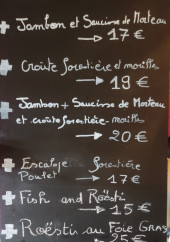 + Jambon et Saucisse de Morteau
→ 17 €
+ Croûte forestière et morilles
→ 19 €
+ Jambon + Saucisse de Morteau
et croûte forestière - morilles
→ 20 €
+ Escalope forestière
Poulet → 17 €
+ Fish and Roësti
→ 15 €
+ Roësti au Foie Gras
→ 25 €